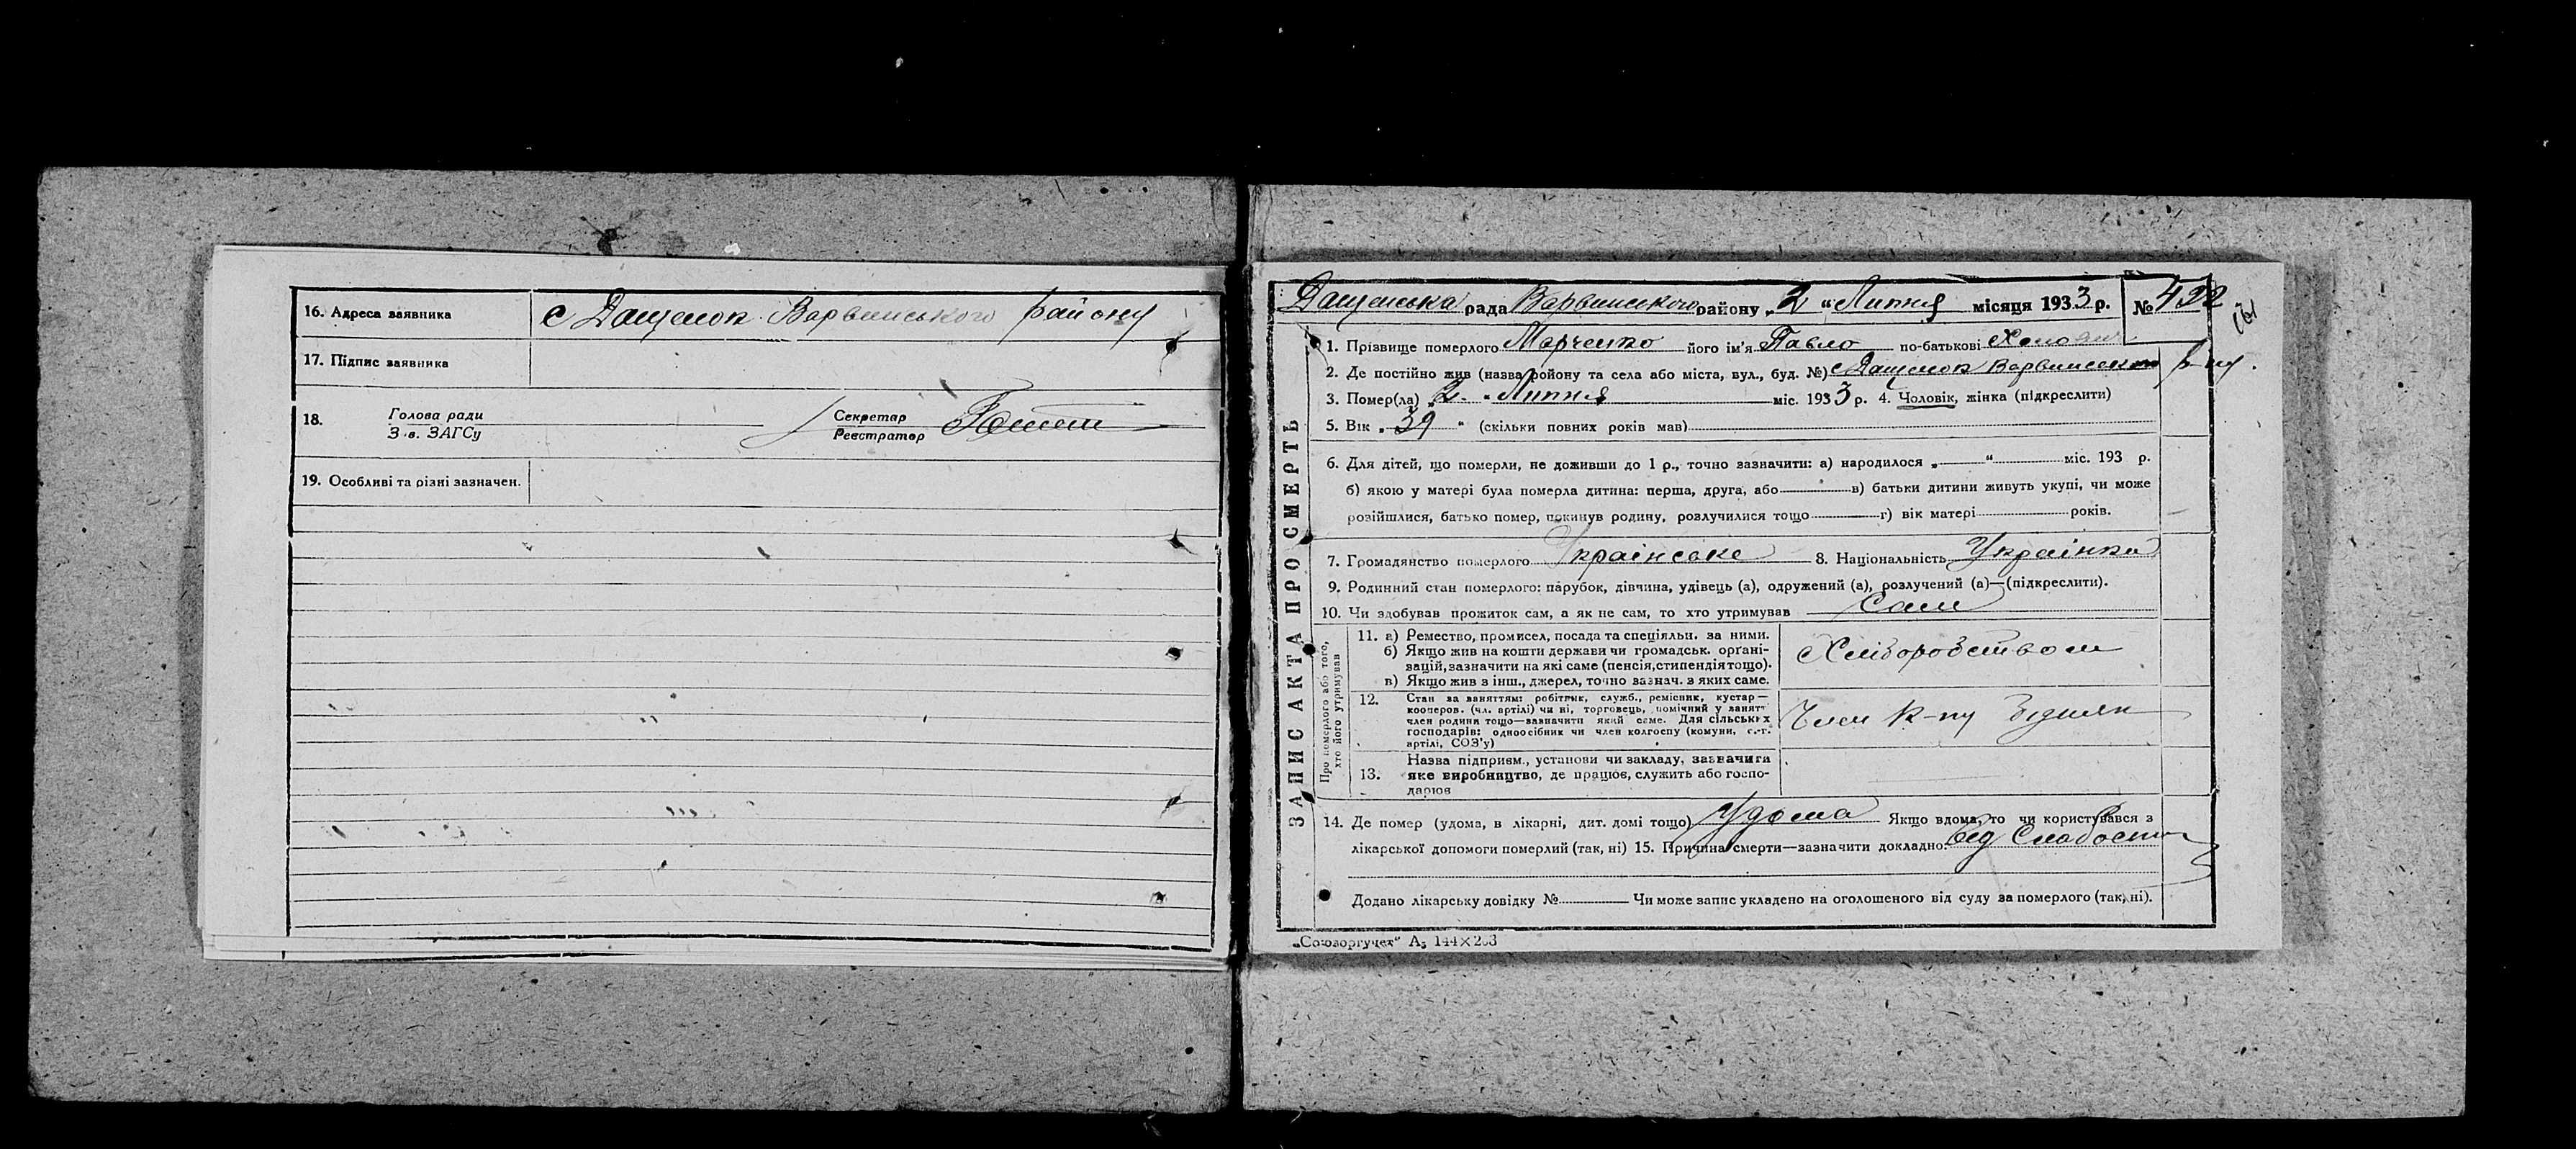 16. Адреса заявника с Дащенок Варвинського району
17. Підпис заявника
18. Голова ради
З.в. ЗАГСу
Секретар
Реєстратор
19. Особливі та різні зазначен.
Дащенська рада Варвинського району „2“ Липня місяця 1933 р. № 422
ЗАПИС АКТА ПРО СМЕРТЬ
1. Прізвище померлого Марченко його ім'я Павло по-батькові
2. Де постійно жив (назва району та села або міста, вул., буд. №) с Дащенок Варвинськ р-ну.
3. Помер(ла) „2“ Липня міс. 1933 р. 4. Чоловік, жінка (підкреслити)
5. Вік „39“ (скільки повних років мав)
6. Для дітей, що померли, не доживши до 1 р., точно зазначити: а) народилося „ “ міс. 193 р.
б) якою у матері була померла дитина: перша, друга, або в) батьки дитини живуть укупі, чи може
розійшлися, батько помер, покинув родину, розлучилися тощо г) вік матері років.
7. Громадянство померлого Українське 8. Національність Українка
9. Родинний стан померлого: парубок, дівчина, удівець (а), одружений (а), розлучений (а)—(підкреслити).
10. Чи здобував прожиток сам, а як не сам, то хто утримував Сам
Про померлого або того,
хто його утримував
11. а) Ремество, промисел, посада та спеціяльн. за ними.
б) Якщо жив на кошти держави чи громадськ. органі-
зацій, зазначити на які саме (пенсія, стипендія тощо).
в) Якщо жив з інш., джерел, точно зазнач. з яких саме.
Хліборобством
12. Стан за заняттям: робітник, служб., ремісник, кустар—
кооперов. (чл. артілі) чи ні, торговець, помічний у занятт
член родини тощо—зазначити який саме. Для сільських
господарів: одноосібник чи член колгоспу (комуни, с.-г.
артілі, СОЗ'у)
Член к-пу бідняк
13. Назва підприєм., установи чи закладу, зазначити
яке виробництво, де працює, служить або госпо-
дарює
14. Де помер (удома, в лікарні, дит. домі тощо) Удома Якщо вдома, то чи користувався з
лікарської допомоги померлий (так, ні) 15. Причина смерти—зазначити докладно: від Слабости
Додано лікарську довідку № Чи може запис укладено на оголошеного від суду за померлого (так, ні).
„Союзоргучет“ А₅ 144×203